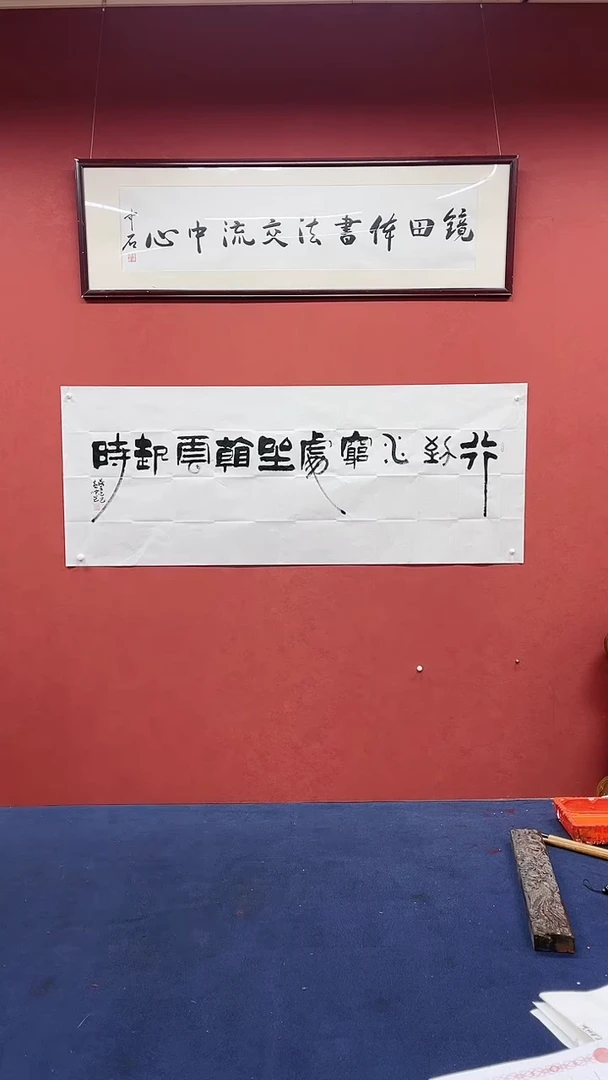 鏡田体書法交流中心
行到水窮處坐看雲起時